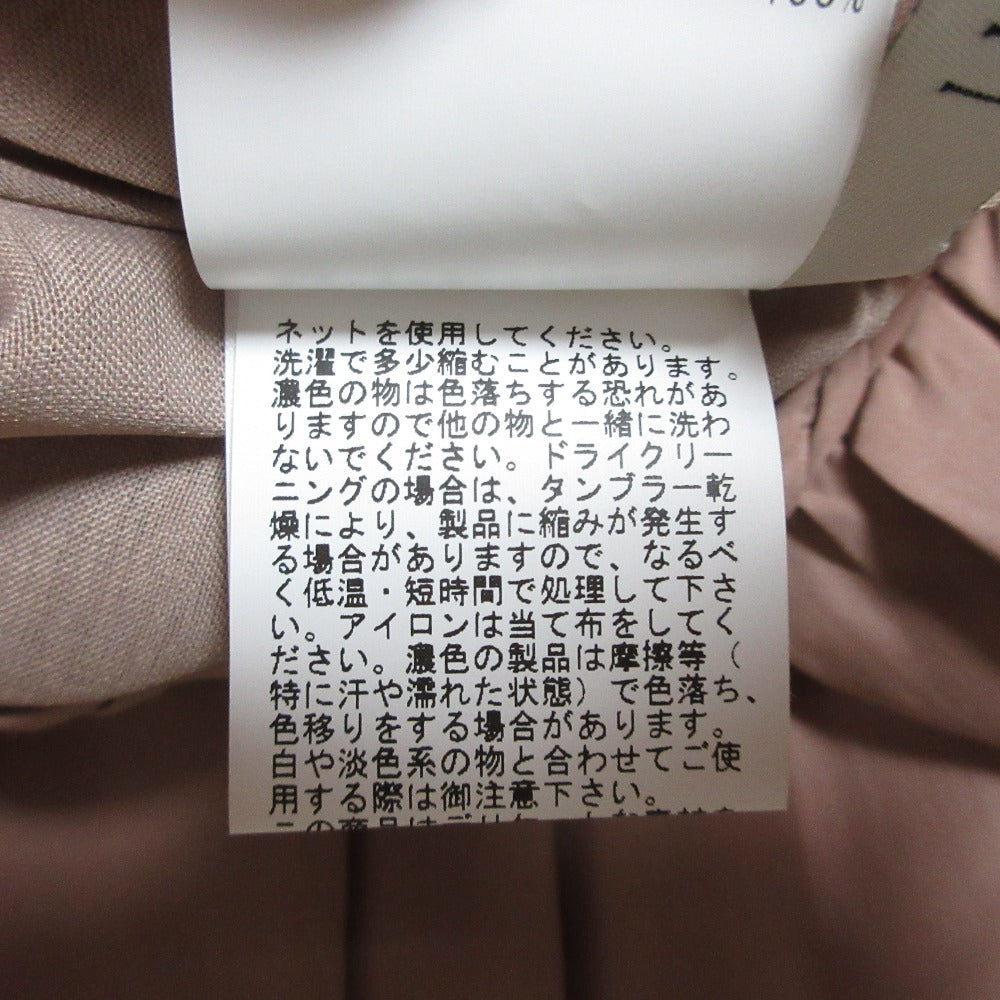 100%
ネットを使用してください。
洗濯で多少縮むことがあります。
濃色の物は色落ちする恐れがあ
りますので他の物と一緒に洗わ
ないでください。ドライクリー
ニングの場合は、タンブラー乾
燥により、製品に縮みが発生す
る場合がありますので、なるべ
く低温・短時間で処理して下さ
い。アイロンは当て布をしてく
ださい。濃色の製品は摩擦等（
特に汗や濡れた状態）で色落ち、
色移りをする場合があります。
白や淡色系の物と合わせてご使
用する際は御注意下さい。
この商品はデリケートな素材を